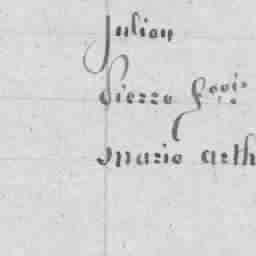 Julien
Pierre fçois
Marie arth